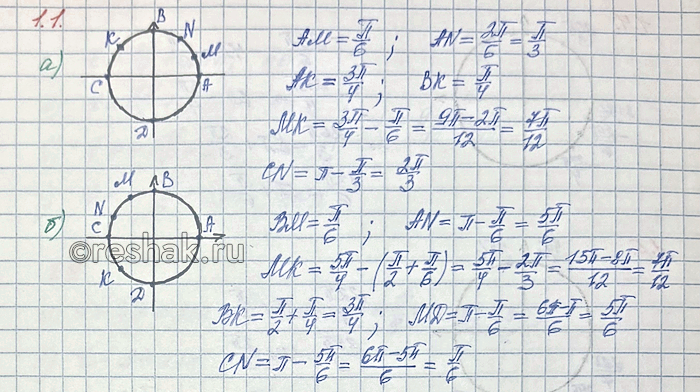 1.1.
а)
B
N
K
M
C
A
D
AM = π/6 ; AN = 2π/6 = π/3
AK = 3π/4 ; BK = π/4
MK = 3π/4 - π/6 = 9π-2π/12 = 7π/12
CN = π - π/3 = 2π/3
б)
M
B
N
C
A
K
D
©reshak.ru
BM = π/6 ; AN = π - π/6 = 5π/6
MK = 5π/4 - (π/2 + π/6) = 5π/4 - 2π/3 = 15π-8π/12 = 7π/12
BK = π/2 + π/4 = 3π/4 ; MD = π - π/6 = 6π-π/6 = 5π/6
CN = π - 5π/6 = 6π-5π/6 = π/6